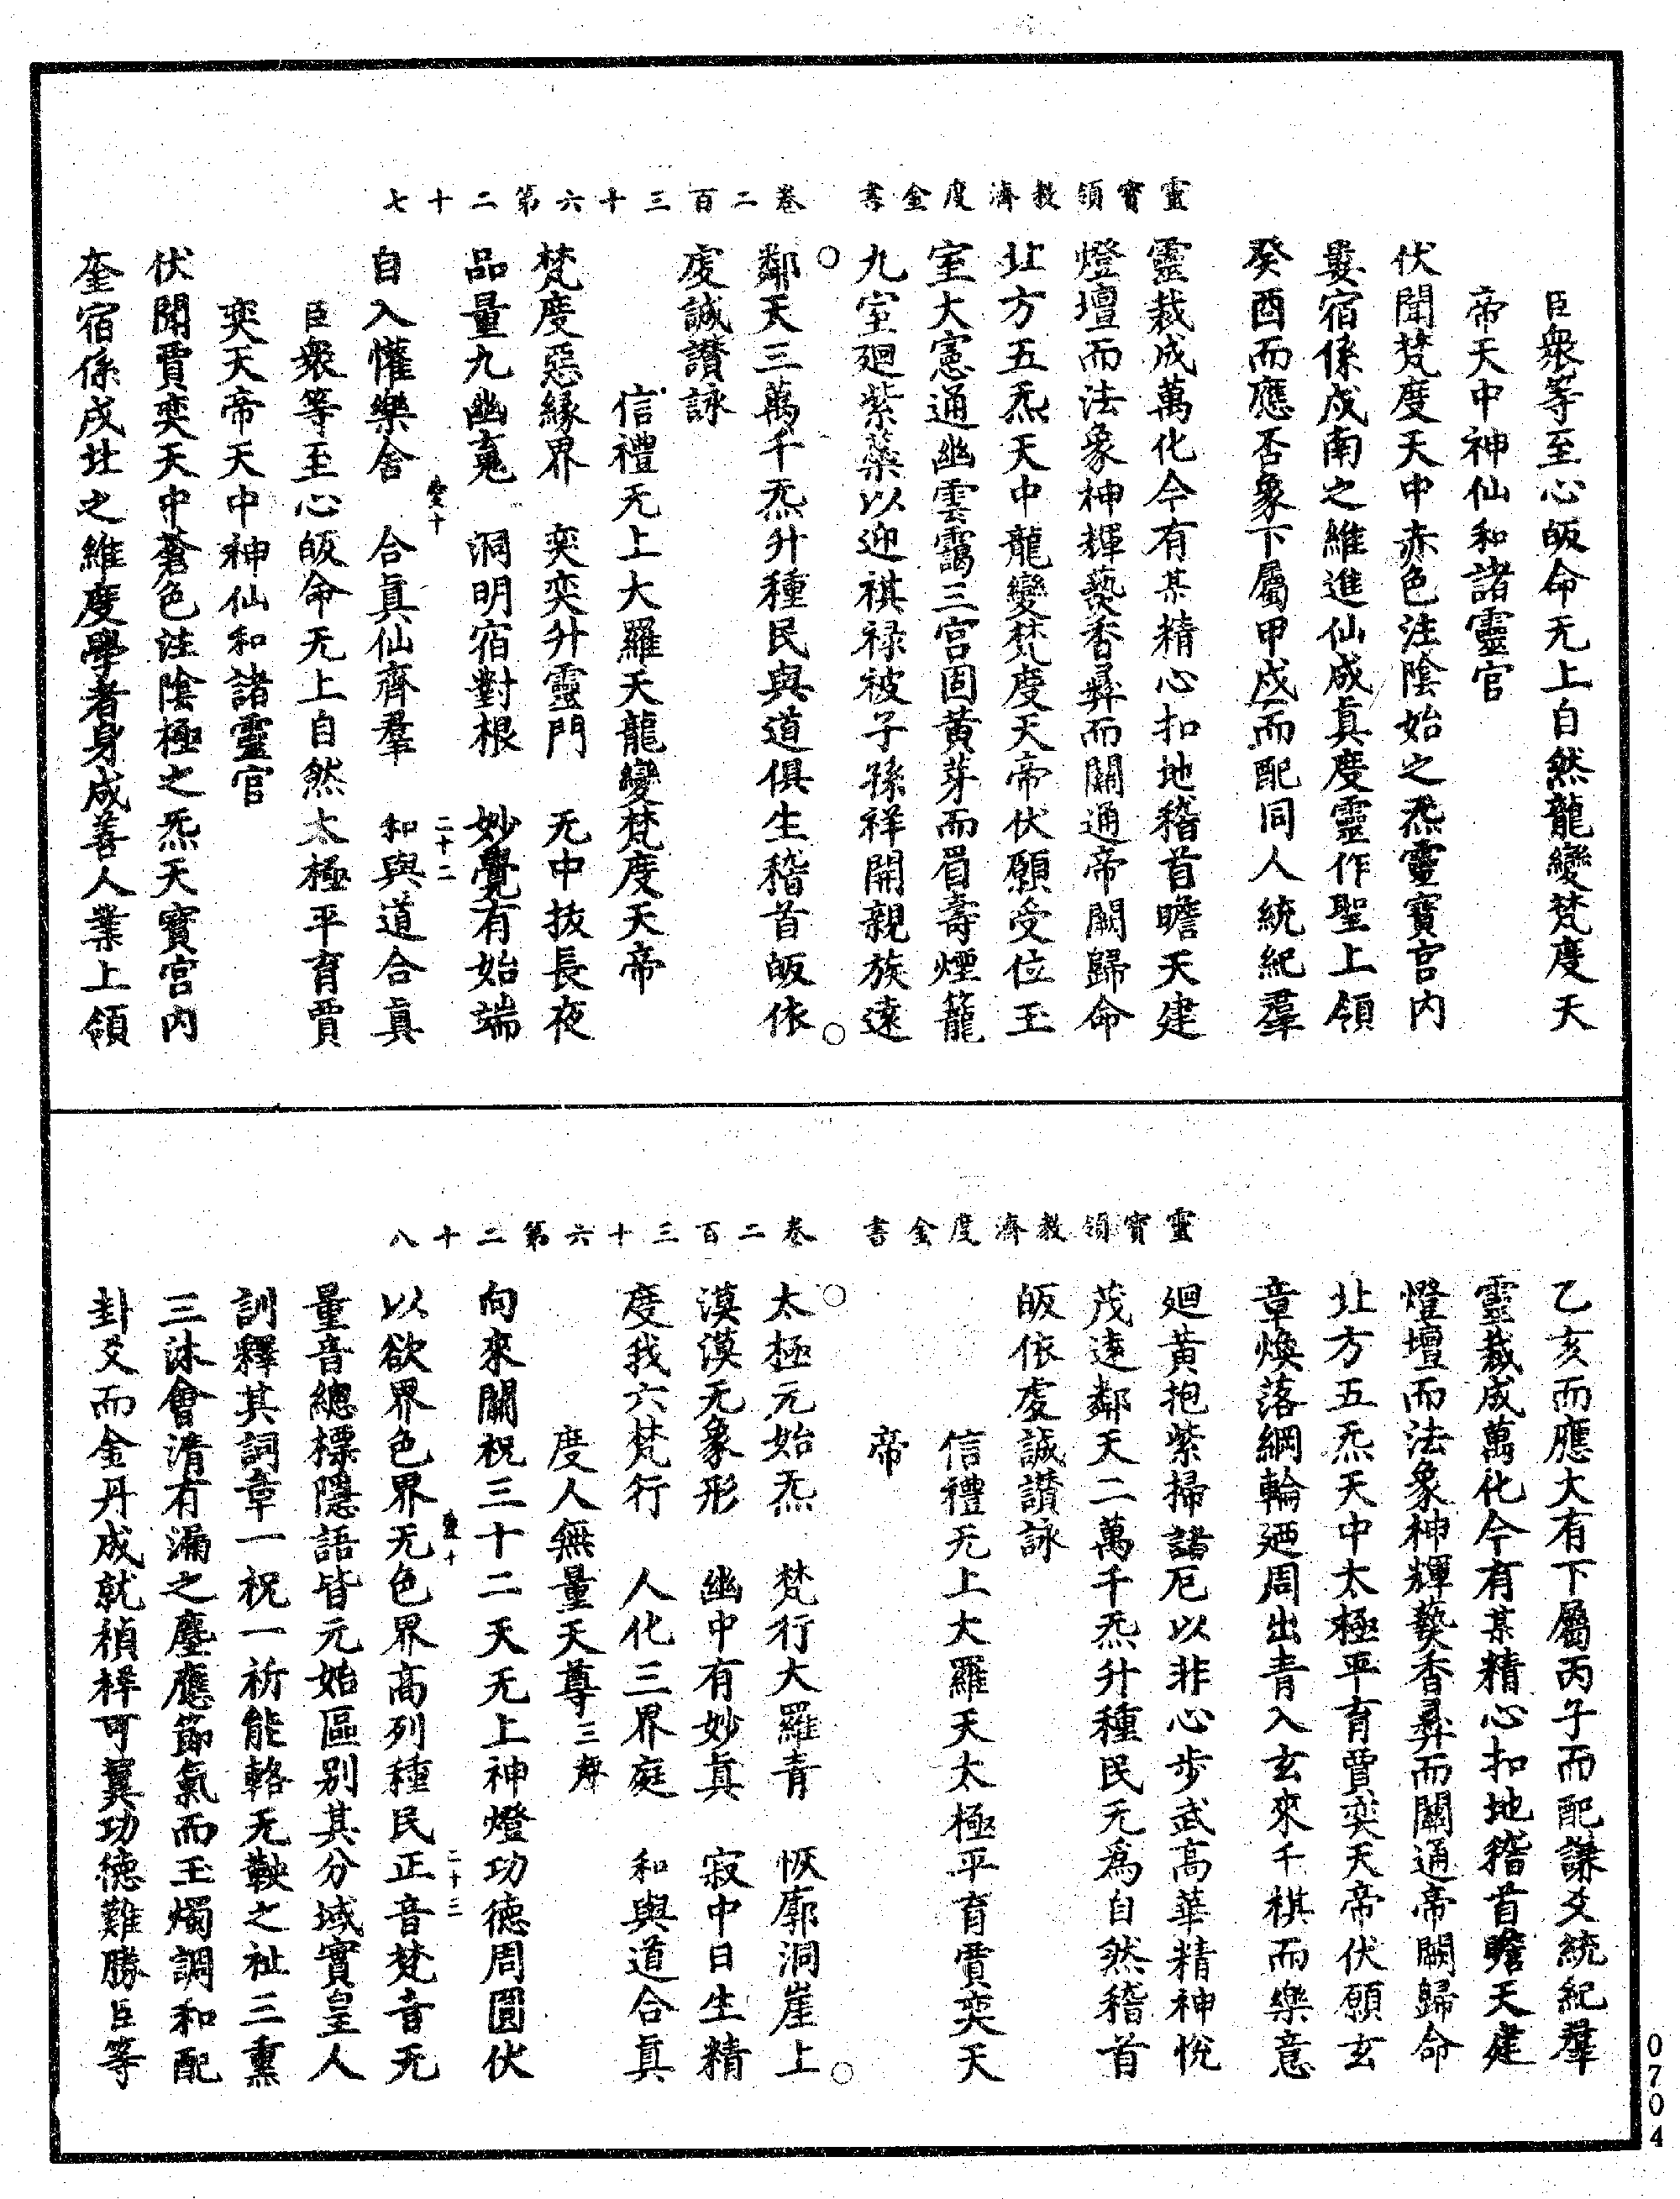 靈寶領教濟度金書　卷二百三十六第二十七
臣衆等至心皈命无上自然龍變梵度天
帝天中神仙和諸靈官
伏聞梵度天中赤色注陰始之炁靈寶宮内
婁宿係戍南之維進仙成真度靈作聖上領
癸酉而應否象下屬甲戍而配同人統紀羣
靈裁成萬化今有某精心扣地稽首瞻天建
燈壇而法象神輝爇香彛而關通帝闕歸命
北方五炁天中龍變梵度天帝伏願受位玉
室大憲通幽雲靄三宫固黄芽而眉壽煙籠
九室廻紫蘂以迎祺禄被子孫祥開親族遠
鄰天三萬千炁升種民與道俱生稽首皈依
虔誠讃詠
信禮无上大羅天龍變梵度天帝
梵度惡緣界　奕奕升靈門　无中拔長夜
品量九幽䰟　洞明宿對根　妙覺有始端
自入懽樂舍　合真仙齊羣　和與道合真
愛十　二十二
臣衆等至心皈命无上自然太極平育賈
奕天帝天中神仙和諸靈官
伏聞賈奕天中蒼色注陰極之炁天寶宫内
奎宿係戍北之維度學者身成善人業上領
靈寶領教濟度金書　卷二百三十六第二十八
乙亥而應大有下屬丙子而配謙爻統紀羣
靈裁成萬化今有某精心扣地稽首瞻天建
燈壇而法象神輝爇香彛而關通帝闕歸命
北方五炁天中太極平育賈奕天帝伏願玄
章煥落綱輪廻周出青入玄來千棋而樂意
廻黄抱紫掃諸厄以非心步武高華精神悅
茂遠鄰天二萬千炁升種民无爲自然稽首
皈依虔誠讃詠
信禮无上大羅天太極平育賈奕天
帝
太極元始炁　梵行大羅青　恢廓洞崖上
漠漠无象形　幽中有妙真　寂中日生精
度我六梵行　人化三界庭　和與道合真
度人無量天尊三聲
向來關祝三十二天无上神燈功德周圓伏
以欲界色界无色界高列種民正音梵音无
愛十　二十三
量音總標隱語皆元始區别其分域實皇人
訓釋其詞章一祝一祈能輅无鞅之祉三熏
三沐會清有漏之塵應節氣而玉燭調和配
卦爻而金丹成就禎祥可冀功德難勝臣等
0704